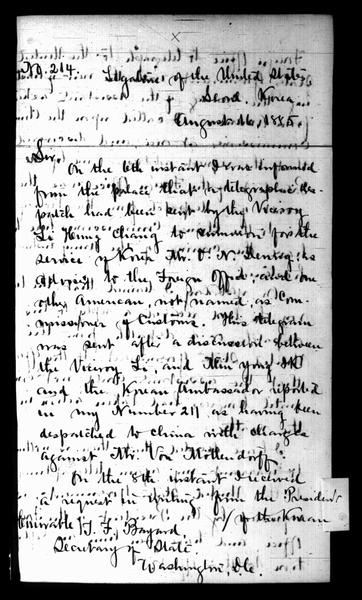 No. 214.
Legation of the United States
Seoul, Korea,
August 16, 1885.
Sir,
On the 6th instant I was informed
from the palace that a telegraphic des-
patch had been sent by the Viceroy
Li Hung Chang to summon for the
service of Korea Mr. O. N. Denny as
Adviser to the Foreign Office and one
other American, not named, as Com-
missioner of Customs. This telegram
was sent after a discussion between
the Viceroy Li, and Min Yong Ik
and the Korean Ambassador reported
in my Number 211 as having been
despatched to China with charges
against Mr. Von Mollendorff.
On the 8th instant I received
a request in writing from the President
of the Korean
Honorable T. F. Bayard
Secretary of State
Washington, D.C.